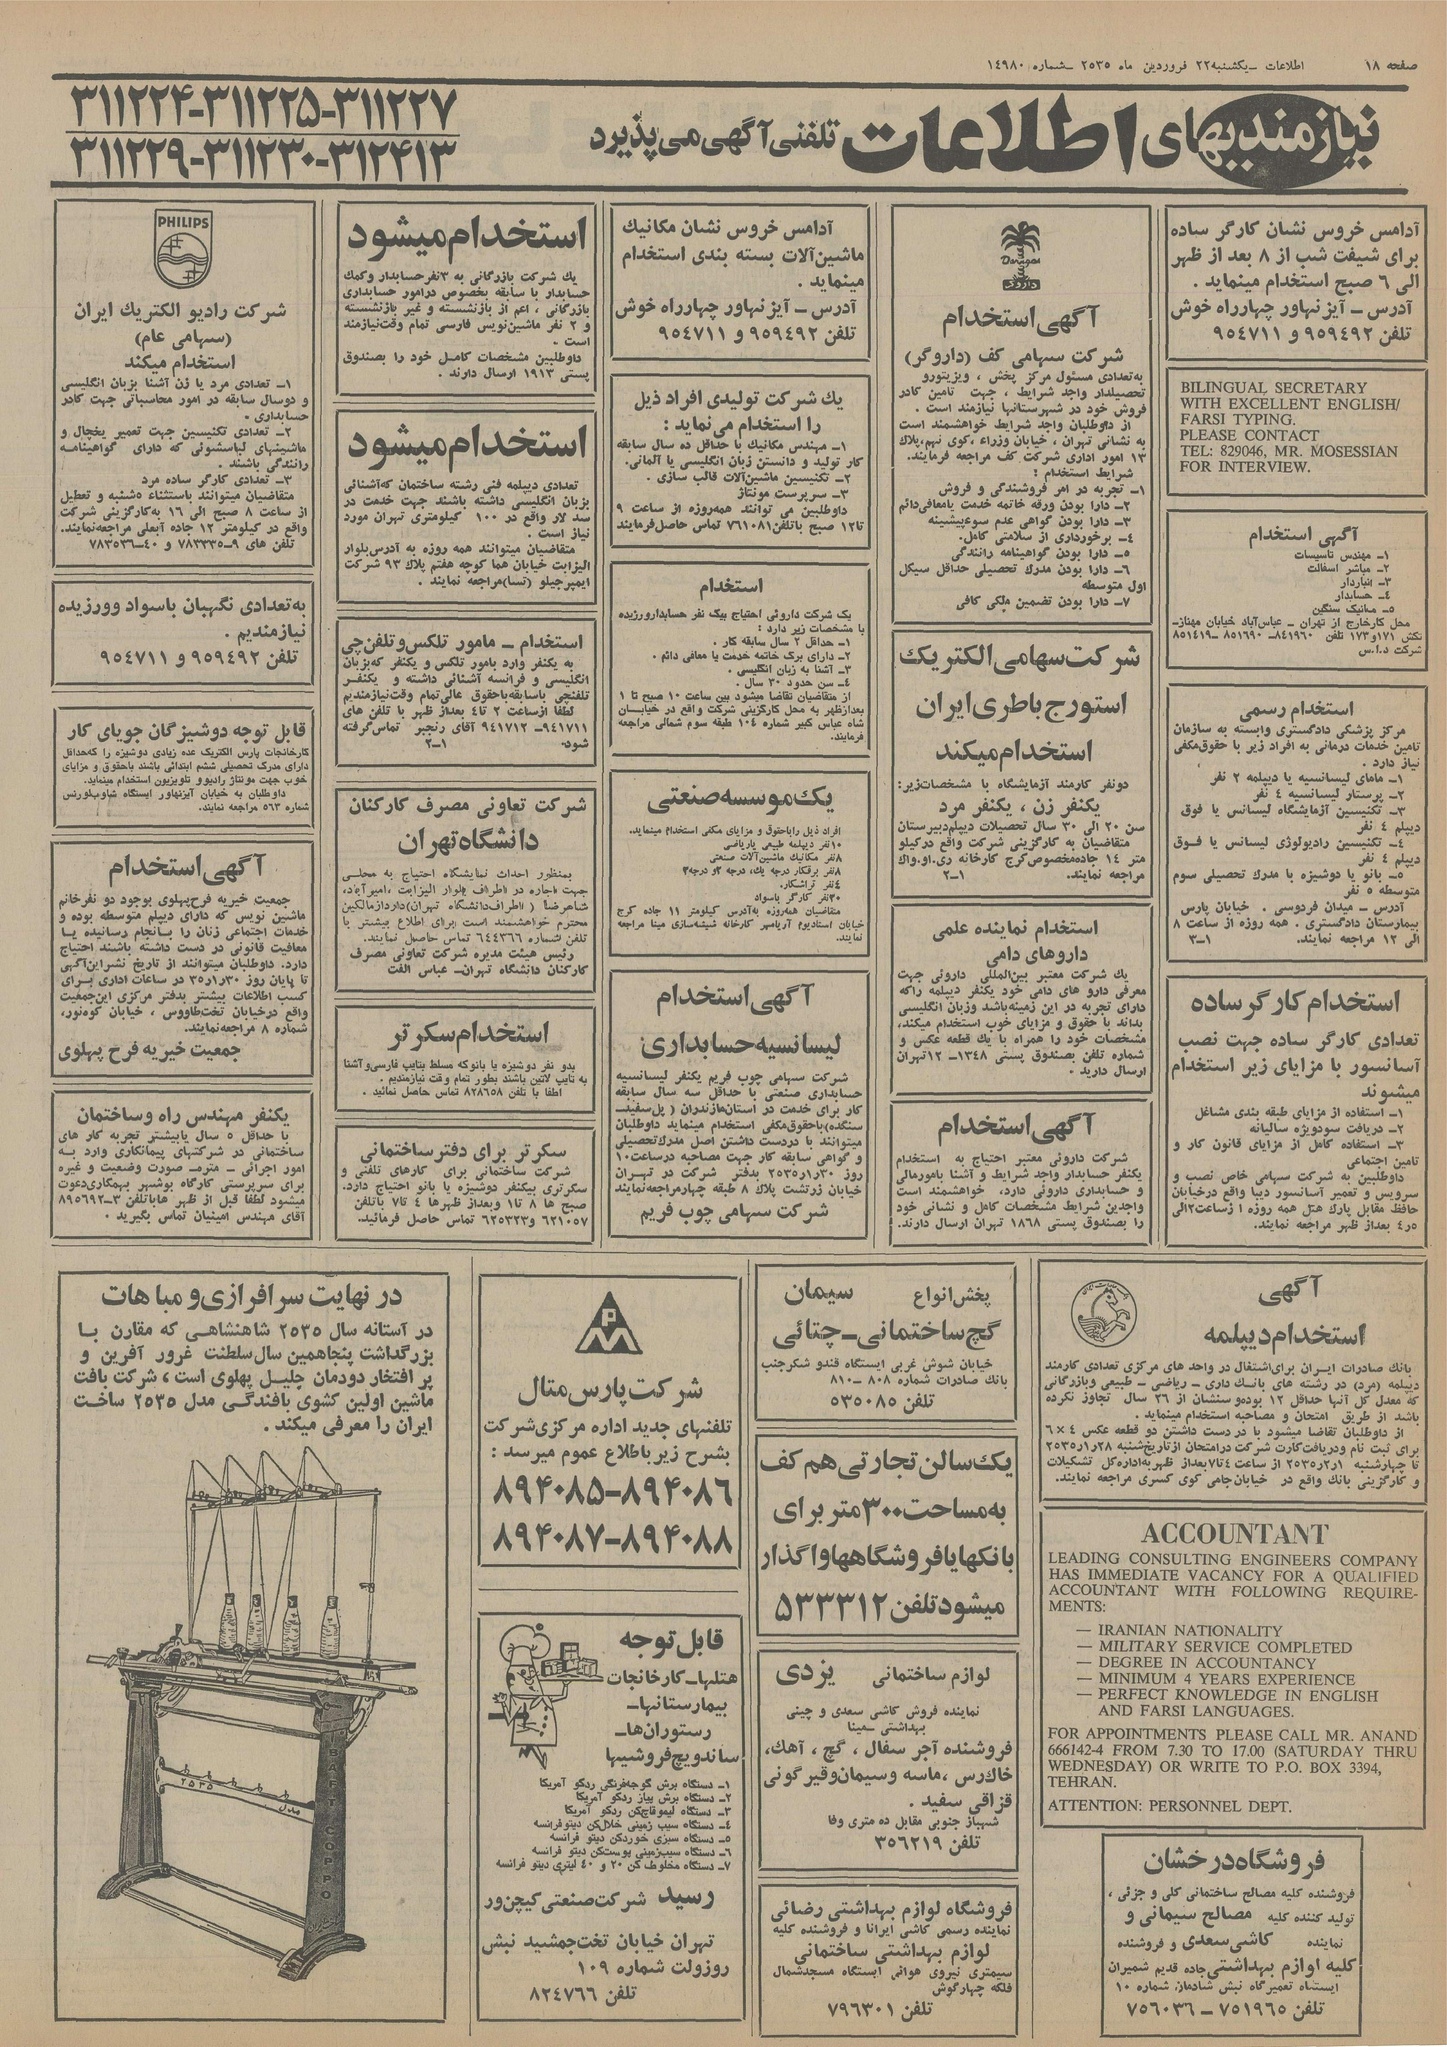 صفحه ۱۸
اطلاعات ـ یکشنبه ۲۲ فروردین ماه ۲۵۳۵ ـ شماره ۱٤۹۸۰
نیازمندیهای اطلاعات تلفنی آگهی می پذیرد
۳۱۱۲۲۴-۳۱۱۲۲۵-۳۱۱۲۲۷
۳۱۱۲۲۹-۳۱۱۲۳۰-۳۱۲۴۱۳
آدامس خروس نشان کارگر ساده
برای شیفت شب از ۸ بعد از ظهر
الی ٦ صبح استخدام مینماید .
آدرس – آیزنهاور چهارراه خوش
تلفن ۹٥۹٤۹۲ و ۹٥٤۷۱۱
BILINGUAL SECRETARY
WITH EXCELLENT ENGLISH/
FARSI TYPING.
PLEASE CONTACT
TEL: 829046, MR. MOSESSIAN
FOR INTERVIEW.
آگهی استخدام
۱– مهندس تاسیسات
۲– مباشر اسفالت
۳– انباردار
٤– حسابدار
٥– مکانیک سنگین
محل کارخارج از تهران – عباس‌آباد خیابان مهناز–
شرکت د.ا.س
استخدام رسمی
مرکز پزشکی دادگستری وابسته به سازمان
تامین خدمات درمانی به افراد زیر با حقوق‌مکفی
نیاز دارد .
۱– مامای لیسانسیه یا دیپلمه ۲ نفر
۲– پرستار لیسانسیه ٤ نفر
۳– تکنیسین آزمایشگاه لیسانس یا فوق
دیپلم ٤ نفر
٤– تکنیسین رادیولوژی لیسانس یا فوق
دیپلم ٤ نفر
٥– بانو یا دوشیزه با مدرک تحصیلی سوم
متوسطه ٥ نفر
آدرس – میدان فردوسی . خیابان پارس
بیمارستان دادگستری . همه روزه از ساعت ۸
الی ۱۲ مراجعه نمایند. ۳–۱
استخدام کارگر ساده
تعدادی کارگر ساده جهت نصب
آسانسور با مزایای زیر استخدام
میشوند
۱– استفاده از مزایای طبقه بندی مشاغل
۲– دریافت سودویژه سالیانه
۳– استفاده کامل از مزایای قانون کار و
تامین اجتماعی
داوطلبین به شرکت سهامی خاص نصب و
سرویس و تعمیر آسانسور دیبا واقع درخیابان
حافظ مقابل پارک هتل همه روزه
بعداز ظهر مراجعه نمایند.
داروگر
آگهی استخدام
شرکت سهامی کف (داروگر)
به‌تعدادی مسئول مرکز پخش ، ویزیتورو
تحصیلدار واجد شرایط ، جهت تامین کادر
فروش خود در شهرستانها نیازمند است .
از داوطلبان واجد شرایط خواهشمند است
به نشانی تهران ، خیابان وزراء ،کوی نهم،پلاک
۱۳ امور اداری شرکت کف مراجعه فرمایند.
شرایط استخدام :
۱– تجربه در امر فروشندگی و فروش
۲– دارا بودن ورقه خاتمه خدمت یامعافی‌دائم
۳– دارا بودن گواهی عدم سوءپیشینه
٤– برخورداری از سلامتی کامل.
٥– دارا بودن گواهینامه رانندگی
٦– دارا بودن مدرک تحصیلی حداقل سیکل
اول متوسطه
۷– دارا بودن تضمین ملکی کافی
شرکت سهامی الکتریک
استورج باطری ایران
استخدام میکند
دونفر کارمند آزمایشگاه با مشخصات‌زیر:
یکنفر زن ، یکنفر مرد
سن ۲۰ الی ۳۰ سال تحصیلات دیپلم‌دبیرستان
متقاضیان به کارگزینی شرکت واقع درکیلو
متر ۱٤ جاده‌مخصوص‌کرج کارخانه ری.او.واک
مراجعه نمایند. ۲–۱
استخدام نماینده علمی
داروهای دامی
یک شرکت معتبر بین‌المللی داروئی جهت
معرفی دارو های دامی خود یکنفر دیپلمه راکه
دارای تجربه در این زمینه‌باشد وزبان انگلیسی
بداند با حقوق و مزایای خوب استخدام میکند،
مشخصات خود را همراه با یک قطعه عکس و
شماره تلفن بصندوق پستی ۱۳٤۸–۱۲تهران
ارسال دارید .
آگهی استخدام
شرکت داروئی معتبر احتیاج به استخدام
یکنفر حسابدار واجد شرایط و آشنا بامورمالی
و حسابداری داروئی دارد، خواهشمند است
واجدین شرایط مشخصات کامل و نشانی خود
را بصندوق پستی ۱۸٦۸ تهران ارسال دارند.
آدامس خروس نشان مکانیک
ماشین‌آلات بسته بندی استخدام
مینماید .
آدرس – آیز نهاور چهارراه خوش
تلفن ۹٥۹٤۹۲ و ۹٥٤۷۱۱
یک شرکت تولیدی افراد ذیل
را استخدام می‌نماید :
۱– مهندس مکانیک با حداقل ده سال سابقه
کار تولید و دانستن زبان انگلیسی یا آلمانی.
۲– تکنیسین ماشین‌آلات قالب سازی .
۳– سرپرست مونتاژ
داوطلبین می توانند همه‌روزه از ساعت ۹
تا۱۲ صبح باتلفن۷٦۱۰۸۱ تماس حاصل‌فرمایند
استخدام
یک شرکت داروئی احتیاج بیک نفر حسابدارورزیده
با مشخصات زیر دارد :
۱– حداقل ۲ سال سابقه کار .
۲– دارای برگ خاتمه خدمت یا معافی دائم .
۳– آشنا به زبان انگلیسی .
٤– سن حدود ۳۰ سال .
از متقاضیان تقاضا میشود بین ساعت ۱۰ صبح تا ۱
بعدازظهر به محل کارگزینی شرکت واقع در خیابان
شاه عباس کبیر شماره ۱۰٤ طبقه سوم شمالی مراجعه
فرمایند.
یک موسسه صنعتی
افراد ذیل راباحقوق و مزایای مکفی استخدام مینماید.
۱۰نفر دیپلمه طبیعی یاریاضی
۸نفر مکانیک ماشین‌آلات صنعتی
۸نفر برقکار درجه یک، درجه ۲و درجه۳
٤نفر تراشکار.
۳۰نفر کارگر باسواد
متقاضیان همه‌روزه به‌آدرس کیلومتر ۱۱ جاده کرج
خیابان استادیوم آریامهر کارخانه شیشه‌سازی مینا مراجعه
نمایند.
آگهی استخدام
لیسانسیه حسابداری
شرکت سهامی چوب فریم یکنفر لیسانسیه
حسابداری صنعتی با حداقل سه سال سابقه
کار برای خدمت در استان‌مازندران ( پل‌سفید–
سنگده)باحقوق‌مکفی استخدام مینماید داوطلبان
میتوانند با دردست داشتن اصل مدرک‌تحصیلی
و گواهی سابقه کار جهت مصاحبه درساعت۱۰
روز ۲۵۳۵ر۱ر۳۰ بدفتر شرکت در تهران
خیابان زرتشت پلاک ۸ طبقه چهارم‌مراجعه‌نمایند
شرکت سهامی چوب فریم
استخدام میشود
یک شرکت بازرگانی به ۳نفرحسابدار وکمک
حسابدار با سابقه بخصوص درامور حسابداری
بازرگانی ، اعم از بازنشسته و غیر بازنشسته
و ۲ نفر ماشین‌نویس فارسی تمام وقت‌نیازمند
است .
داوطلبین مشخصات کامل خود را بصندوق
پستی ۱۹۱۳ ارسال دارند .
استخدام میشود
تعدادی دیپلمه فنی رشته ساختمان که‌آشنائی
بزبان انگلیسی داشته باشند جهت خدمت در
سد لار واقع در ۱۰۰ کیلومتری تهران مورد
نیاز است .
متقاضیان میتوانند همه روزه به آدرس‌بلوار
الیزابت خیابان هما کوچه هفتم پلاک ۹۳ شرکت
ایمپرجیلو (تسا)مراجعه نمایند .
استخدام – مامور تلکس و تلفن‌چی
به یکنفر وارد بامور تلکس و یکنفر که‌بزبان
انگلیسی و فرانسه آشنائی داشته و یکنفر
تلفنچی باسابقه‌باحقوق عالی‌تمام وقت‌نیازمندیم
لطفا ازساعت ۲ تا٤ بعداز ظهر با تلفن های
۹٤۱۷۱۱– ۹٤۱۷۱۲ آقای رنجبر تماس‌گرفته
شود. ۲–۱
شرکت تعاونی مصرف کارکنان
دانشگاه تهران
بمنظور احداث نمایشگاه احتیاج به محلی
جهت اجاره در اطراف بلوار الیزابت ،امیرآباد،
شاهرضا (اطراف‌دانشگاه تهران)داردازمالکین
محترم خواهشمند است برای اطلاع بیشتر با
تلفن شماره ٦٤٤۳٦٦ تماس حاصل نمایند.
رئیس هیئت مدیره شرکت تعاونی مصرف
کارکنان دانشگاه تهران– عباس الفت
استخدام سکرتر
بدو نفر دوشیزه یا بانوکه مسلط بتایپ فارسی‌وآشنا
به تایپ لاتین باشند بطور تمام وقت نیازمندیم .
لطفا با تلفن ۸۲۸٦٥۸ تماس حاصل نمائید .
سکرتر برای دفتر ساختمانی
شرکت ساختمانی برای کارهای تلفنی و
سکرتری بیکنفر دوشیزه یا بانو احتیاج دارد.
صبح ها ۸ تا۱ وبعداز ظهرها ٤ تا۷ باتلفن
٦۲۱۰٥۷ و٦۲٥۳۲۳ تماس حاصل فرمائید.
PHILIPS
شرکت رادیو الکتریک ایران
(سهامی عام)
استخدام میکند
۱– تعدادی مرد یا زن آشنا بزبان انگلیسی
و دوسال سابقه در امور محاسباتی جهت کادر
حسابداری .
۲– تعدادی تکنیسین جهت تعمیر یخچال و
ماشینهای لباسشوئی که دارای گواهینامه
رانندگی باشند .
۳– تعدادی کارگر ساده مرد
متقاضیان میتوانند باستثناء ٥شنبه و تعطیل
از ساعت ۸ صبح الی ۱٦ به‌کارگزینی شرکت
واقع در کیلومتر ۱۲ جاده آبعلی مراجعه‌نمایند.
تلفن های ۹–۷۸۳۳۳٥ و ٤۰–۷۸۳٥۳٦
به تعدادی نگهبان باسواد وورزیده
نیازمندیم .
تلفن ۹٥۹٤۹۲ و ۹٥٤۷۱۱
قابل توجه دوشیزگان جویای کار
کارخانجات پارس الکتریک عده زیادی دوشیزه را که‌حداقل
دارای مدرک تحصیلی ششم ابتدائی باشند باحقوق و مزایای
خوب جهت مونتاژ رادیو و تلویزیون استخدام مینماید.
داوطلبان به خیابان آیزنهاور ایستگاه شاوب‌لورنس
شماره ٥٦۳ مراجعه نمایند.
آگهی استخدام
جمعیت خیریه فرح‌پهلوی بوجود دو نفرخانم
ماشین نویس که دارای دیپلم متوسطه بوده و
خدمات اجتماعی زنان را بانجام رسانیده یا
معافیت قانونی در دست داشته باشند احتیاج
دارد. داوطلبان میتوانند از تاریخ نشراین‌آگهی
تا پایان روز ۳٥ر۱ر۳۰ در ساعات اداری برای
کسب اطلاعات بیشتر بدفتر مرکزی این‌جمعیت
واقع درخیابان تخت‌طاووس ، خیابان کوه‌نور،
شماره ۸ مراجعه‌نمایند.
جمعیت خیریه فرح پهلوی
یکنفر مهندس راه و ساختمان
با حداقل ٥ سال یابیشتر تجربه کار های
ساختمانی در شرکتهای پیمانکاری وارد به
امور اجرائی – متره– صورت وضعیت و غیره
برای سرپرستی کارگاه بوشهر بهمکاری‌دعوت
میشود لطفا قبل از ظهر هاباتلفن ۳–۸۹٥٦۹۲
آقای مهندس امینیان تماس بگیرید .
آگهی
استخدام دیپلمه
بانک صادرات ایران برای‌اشتغال در واحد های مرکزی تعدادی کارمند
دیپلمه (مرد) در رشته های بانک داری – ریاضی – طبیعی وبازرگانی
که معدل کل آنها حداقل ۱۲ بوده‌و سنشان از ۲٦ سال تجاوز نکرده
باشد از طریق امتحان و مصاحبه استخدام مینماید .
از داوطلبان تقاضا میشود با در دست داشتن دو قطعه عکس ٤ × ٦
برای ثبت نام ودریافت‌کارت شرکت درامتحان ازتاریخ‌شنبه ۲٥۳٥ر۱ر۲۸
تا چهارشنبه ۲٥۳٥ر۲ر۱ از ساعت ٤تا۷ بعداز ظهر به‌اداره‌کل تشکیلات
و کارگزینی بانک واقع در خیابان‌جامی کوی کسری مراجعه نمایند.
ACCOUNTANT
LEADING CONSULTING ENGINEERS COMPANY
HAS IMMEDIATE VACANCY FOR A QUALIFIED
ACCOUNTANT WITH FOLLOWING REQUIRE-
MENTS:
— IRANIAN NATIONALITY
— MILITARY SERVICE COMPLETED
— DEGREE IN ACCOUNTANCY
— MINIMUM 4 YEARS EXPERIENCE
— PERFECT KNOWLEDGE IN ENGLISH
AND FARSI LANGUAGES.
FOR APPOINTMENTS PLEASE CALL MR. ANAND
666142-4 FROM 7.30 TO 17.00 (SATURDAY THRU
WEDNESDAY) OR WRITE TO P.O. BOX 3394,
TEHRAN.
ATTENTION: PERSONNEL DEPT.
فروشگاه درخشان
فروشنده کلیه مصالح ساختمانی کلی و جزئی ،
تولید کننده کلیه مصالح سیمانی و
نماینده کاشی سعدی و فروشنده
کلیه لوازم بهداشتی جاده قدیم شمیران
ایستگاه تعمیرگاه نبش شادمان شماره ۱۰
تلفن ۷٥۱۹٦٥ – ۷٥٦۰۳٦
پخش انواع سیمان
گچ ساختمانی–چتائی
خیابان شوش غربی ایستگاه قندو شکرجنب
بانک صادرات شماره ۸۰۸ –۸۱۰
تلفن ٥۳٥۰۸٥
یک سالن تجارتی هم کف
به مساحت ۳۰۰ متر برای
بانکها یا فروشگاهها واگذار
میشود تلفن ۵۳۳۳۱۲
لوازم ساختمانی یزدی
نماینده فروش کاشی سعدی و چینی
بهداشتی –مینا
فروشنده آجر سفال ، گچ ، آهک،
خاک‌رس ،ماسه وسیمان‌وقیرگونی
قزاقی سفید .
شهباز جنوبی مقابل ده متری وفا
تلفن ۳٥٦۲۱۹
فروشگاه لوازم بهداشتی رضائی
نماینده رسمی کاشی ایرانا و فروشنده کلیه
لوازم بهداشتی ساختمانی
سیمتری نیروی هوائی ایستگاه مسجدشمال
فلکه چهارگوش
تلفن ۷۹٦۳۰۱
شرکت پارس متال
تلفنهای جدید اداره مرکزی شرکت
بشرح زیر باطلاع عموم میرسد :
۸۹۴۰۸۵-۸۹۴۰۸۶
۸۹۴۰۸۷-۸۹۴۰۸۸
قابل توجه
هتلها–کارخانجات
بیمارستانها–
رستوران‌ها–
ساندویچ فروشیها
۱– دستگاه برش گوجه‌فرنگی ردکو آمریکا
۲– دستگاه برش پیاز ردکو آمریکا
۳– دستگاه لیموقاچ‌کن ردکو آمریکا
٤– دستگاه سیب زمینی خلال‌کن دیتو‌فرانسه
٥– دستگاه سبزی خوردکن دیتو فرانسه
٦– دستگاه سیب‌زمینی پوست‌کن دیتو فرانسه
۷– دستگاه مخلوط کن ۲۰ و ٤۰ لیتری دیتو فرانسه
رسید شرکت صنعتی کیچن‌ور
تهران خیابان تخت‌جمشید نبش
روزولت شماره ۱۰۹
تلفن ۸۲٤۷٦٦
در نهایت سرافرازی و مباهات
در آستانه سال ۲٥۳٥ شاهنشاهی که مقارن با
بزرگداشت پنجاهمین سال‌سلطنت غرور آفرین و
پر افتخار دودمان جلیل پهلوی است ، شرکت بافت
ماشین اولین کشوی بافندگی مدل ۲٥۳٥ ساخت
ایران را معرفی میکند .
مدل
۲٥۳٥
BAFT COPPO